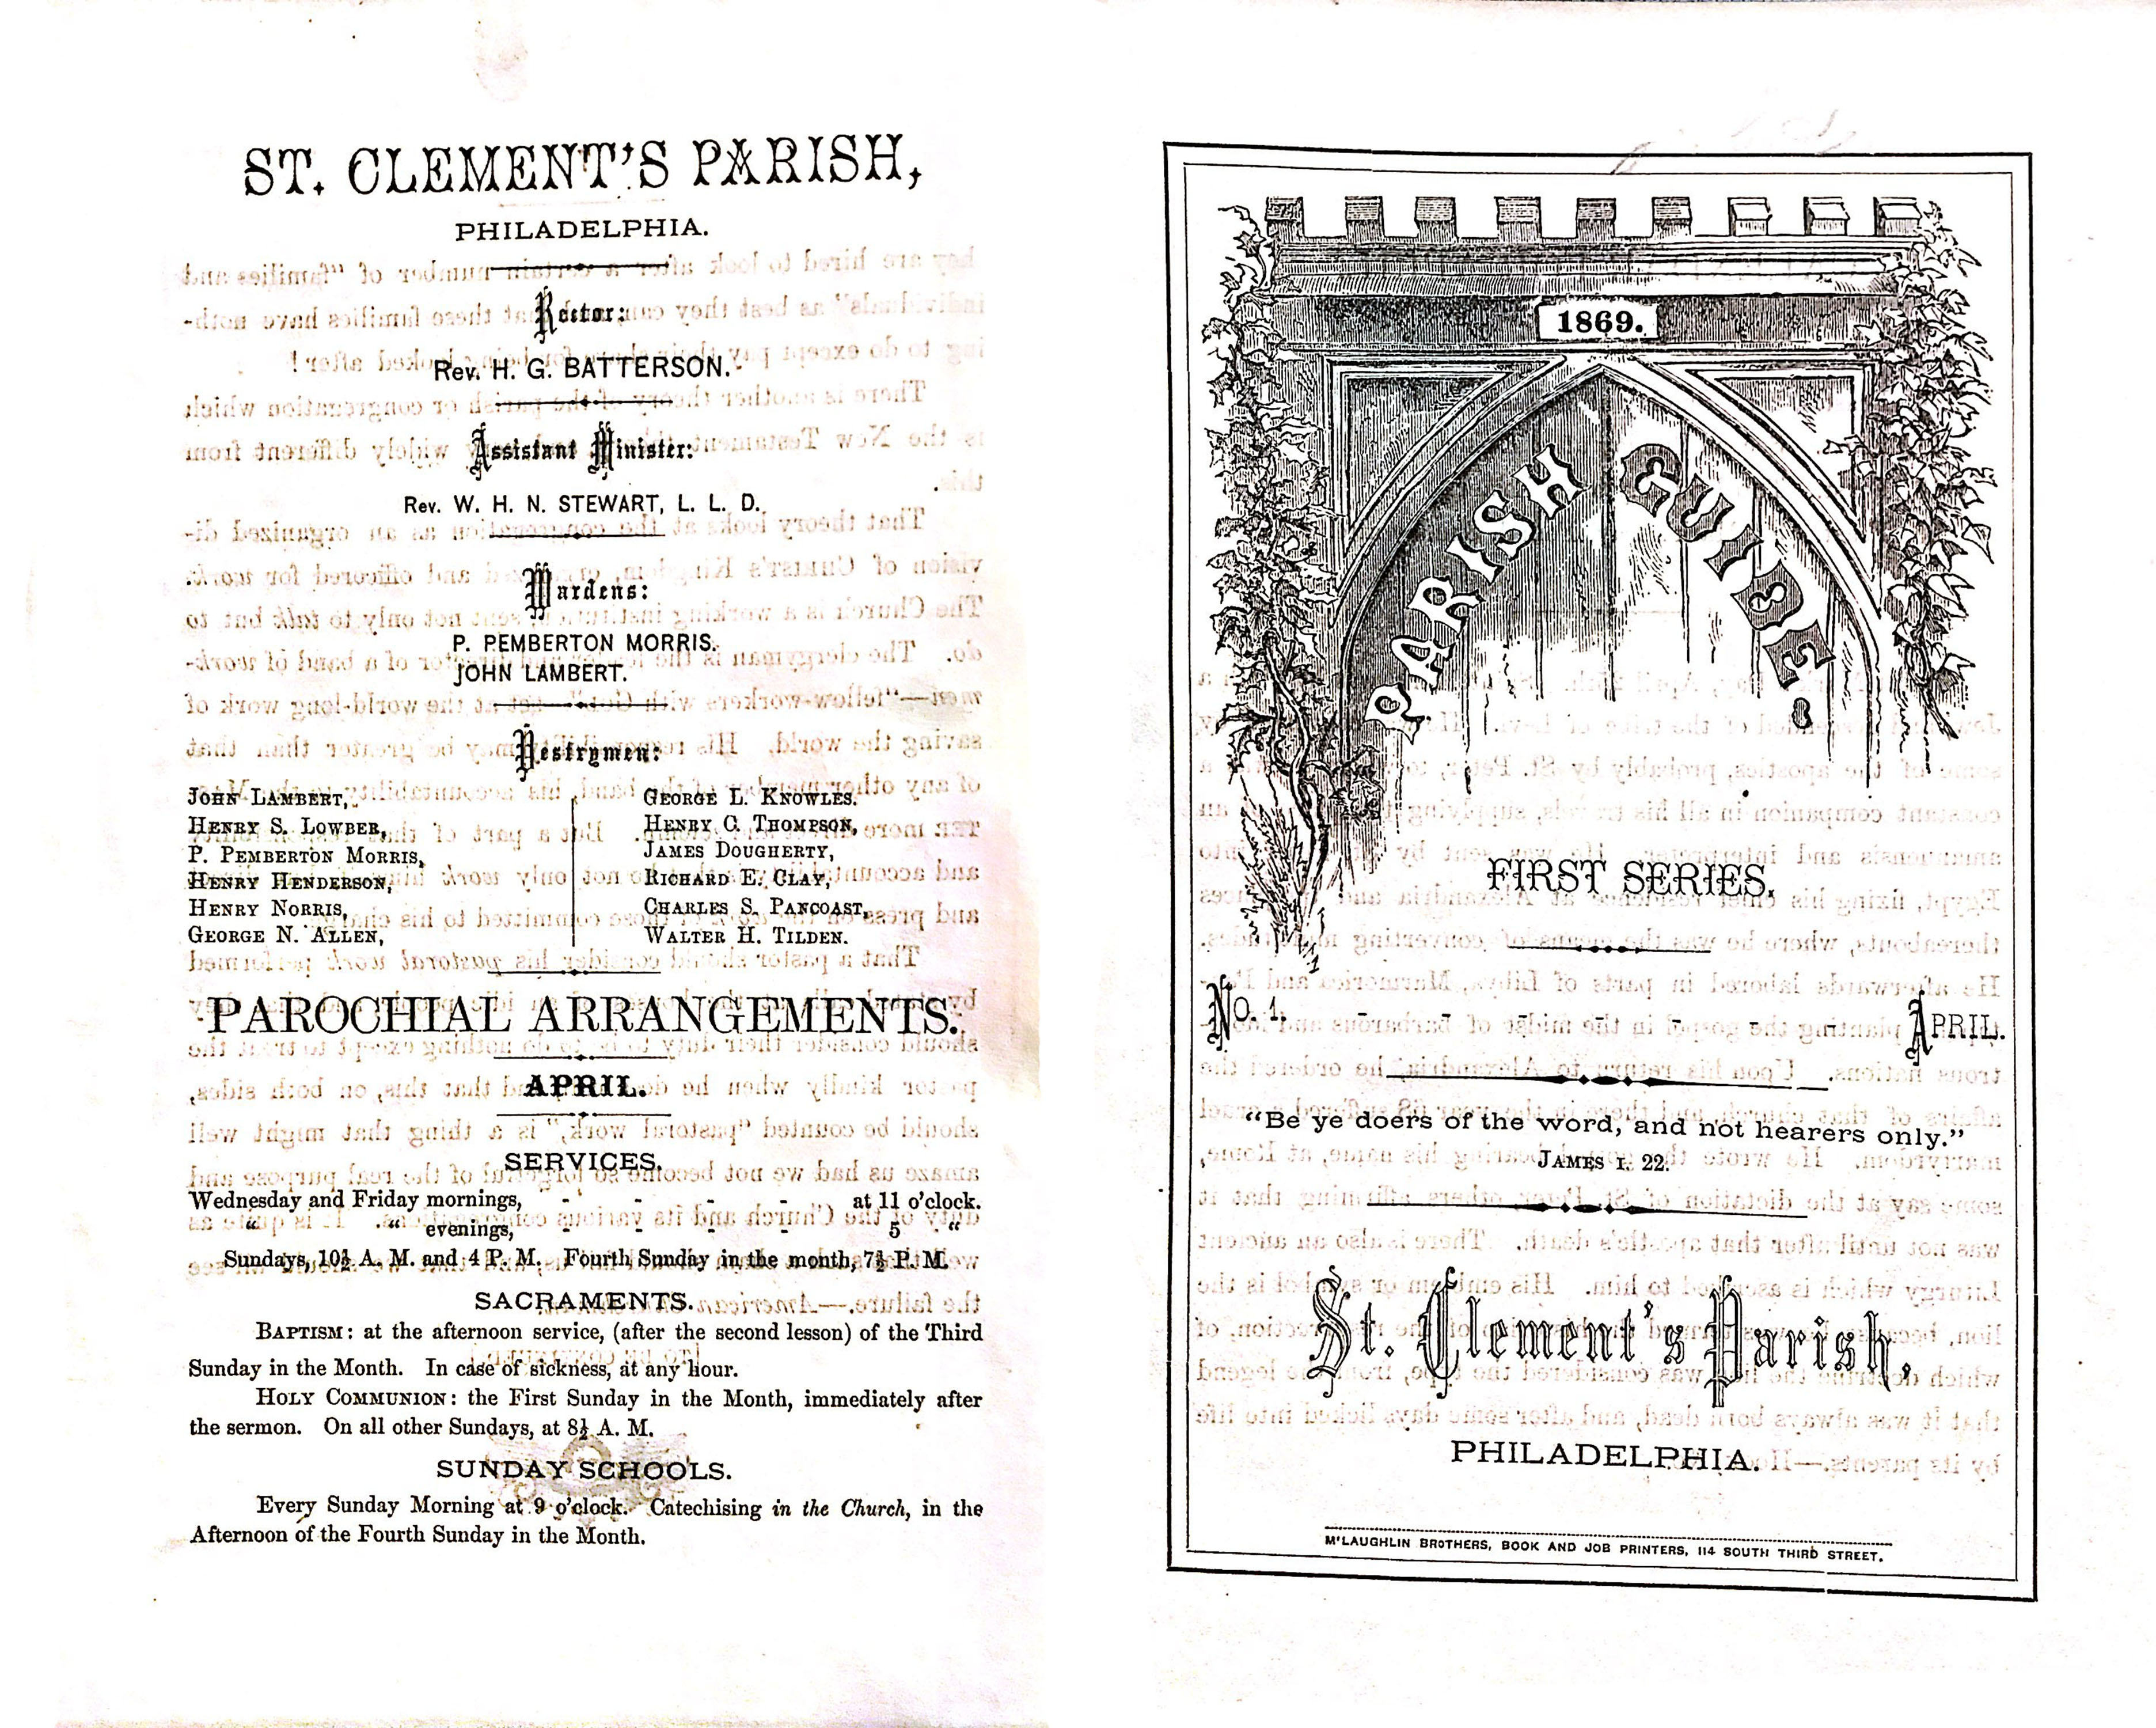 ST. CLEMENT'S PARISH,
PHILADELPHIA.
Rector:
Rev. H. G. BATTERSON.
Assistant Minister:
Rev. W. H. N. STEWART, L. L. D.
Wardens:
P. PEMBERTON MORRIS.
JOHN LAMBERT.
Vestrymen:
JOHN LAMBERT,
HENRY S. LOWBER,
P. PEMBERTON MORRIS,
HENRY HENDERSON,
HENRY NORRIS,
GEORGE N. ALLEN,
GEORGE L. KNOWLES.
HENRY C. THOMPSON,
JAMES DOUGHERTY,
RICHARD E. CLAY,
CHARLES S. PANCOAST,
WALTER H. TILDEN.
PAROCHIAL ARRANGEMENTS.
APRIL.
SERVICES.
Wednesday and Friday mornings, - - - - at 11 o'clock.
" " evenings, - - - - 5 "
Sundays, 10½ A. M. and 4 P. M. Fourth Sunday in the month, 7½ P. M.
SACRAMENTS.
BAPTISM: at the afternoon service, (after the second lesson) of the Third
Sunday in the Month. In case of sickness, at any hour.
HOLY COMMUNION: the First Sunday in the Month, immediately after
the sermon. On all other Sundays, at 8½ A. M.
SUNDAY SCHOOLS.
Every Sunday Morning at 9 o'clock. Catechising in the Church, in the
Afternoon of the Fourth Sunday in the Month.
1869.
PARISH GUIDE.
FIRST SERIES.
No. 1. - - - - - APRIL.
"Be ye doers of the word, and not hearers only."
JAMES I. 22.
St. Clement's Parish,
PHILADELPHIA.
M'LAUGHLIN BROTHERS, BOOK AND JOB PRINTERS, 114 SOUTH THIRD STREET.